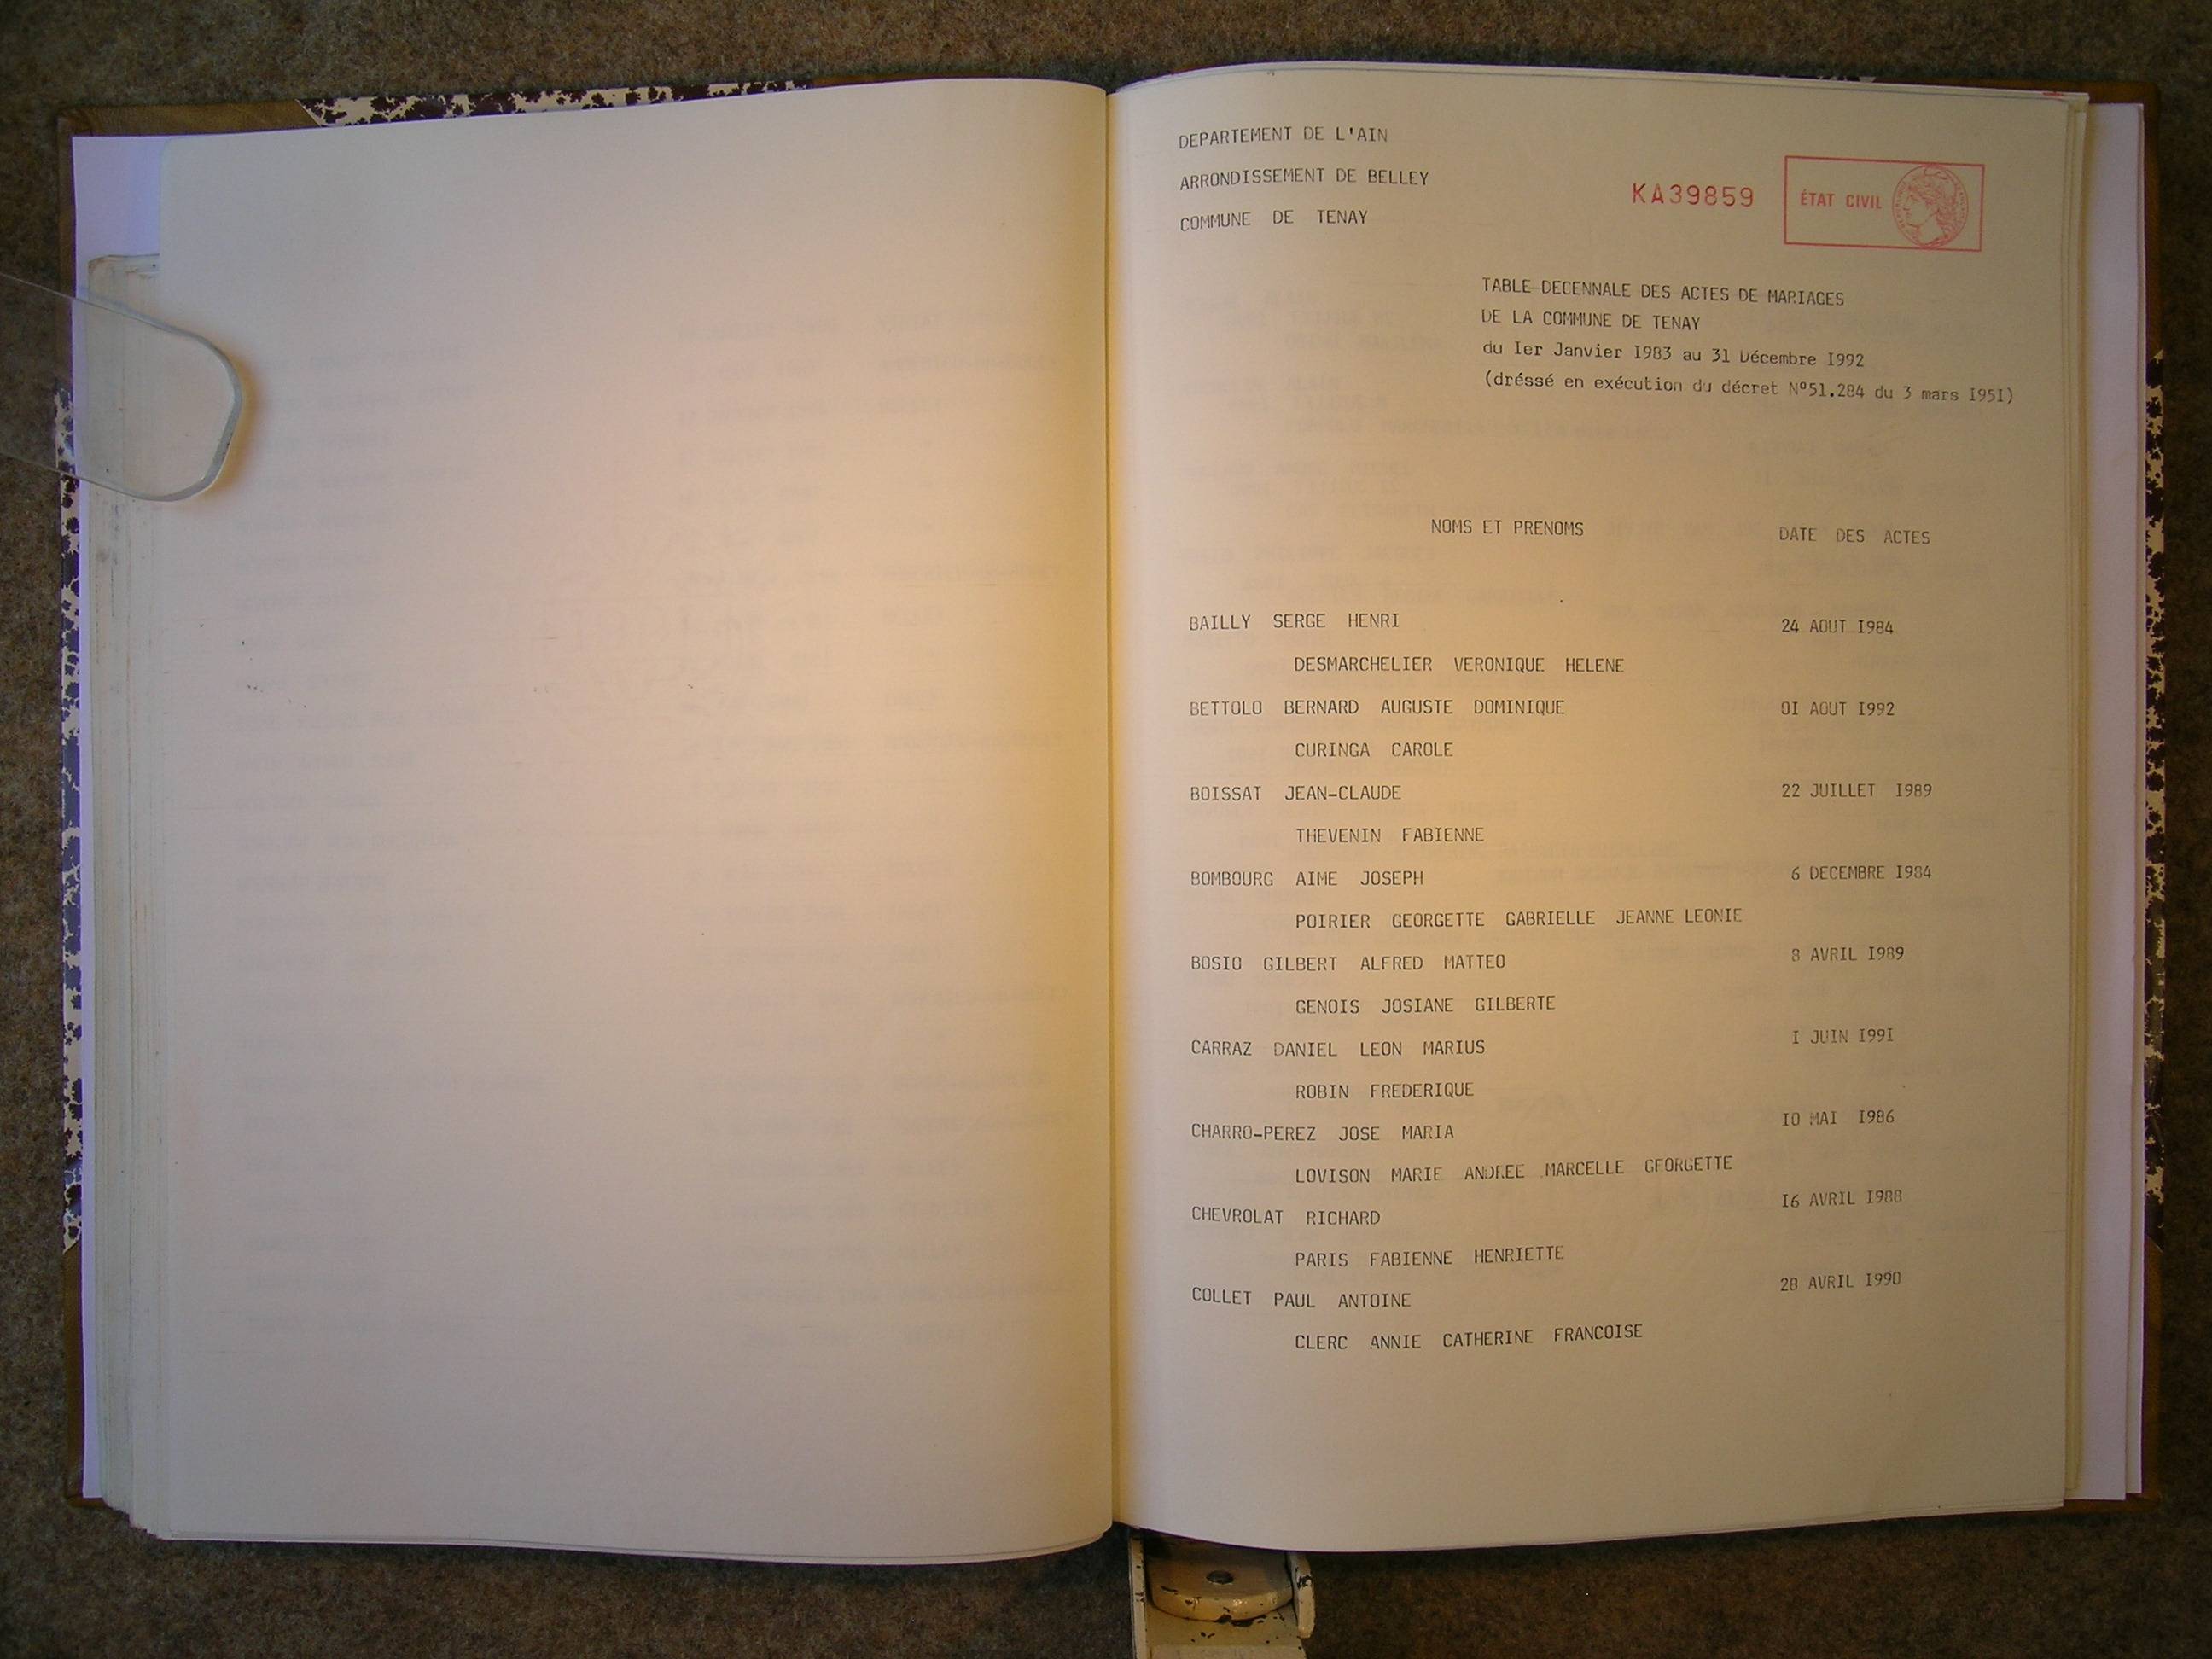 DEPARTEMENT DE L'AIN
ARRONDISSEMENT DE BELLEY
COMMUNE DE TENAY
KA39859
ÉTAT CIVIL
TABLE DECENNALE DES ACTES DE MARIAGES
DE LA COMMUNE DE TENAY
du Ier Janvier I983 au 31 Décembre I992
(dréssé en exécution du décret N°51.284 du 3 mars I95I)
NOMS ET PRENOMS DATE DES ACTES
BAILLY SERGE HENRI 24 AOUT I984
DESMARCHELIER VERONIQUE HELENE
BETTOLO BERNARD AUGUSTE DOMINIQUE OI AOUT I992
CURINGA CAROLE
BOISSAT JEAN-CLAUDE 22 JUILLET I989
THEVENIN FABIENNE
BOMBOURG AIME JOSEPH 6 DECEMBRE I984
POIRIER GEORGETTE GABRIELLE JEANNE LEONIE
BOSIO GILBERT ALFRED MATTEO 8 AVRIL I989
GENOIS JOSIANE GILBERTE
CARRAZ DANIEL LEON MARIUS I JUIN I99I
ROBIN FREDERIQUE
CHARRO-PEREZ JOSE MARIA IO MAI I986
LOVISON MARIE ANDREE MARCELLE GEORGETTE
CHEVROLAT RICHARD I6 AVRIL I988
PARIS FABIENNE HENRIETTE
COLLET PAUL ANTOINE 28 AVRIL I990
CLERC ANNIE CATHERINE FRANCOISE